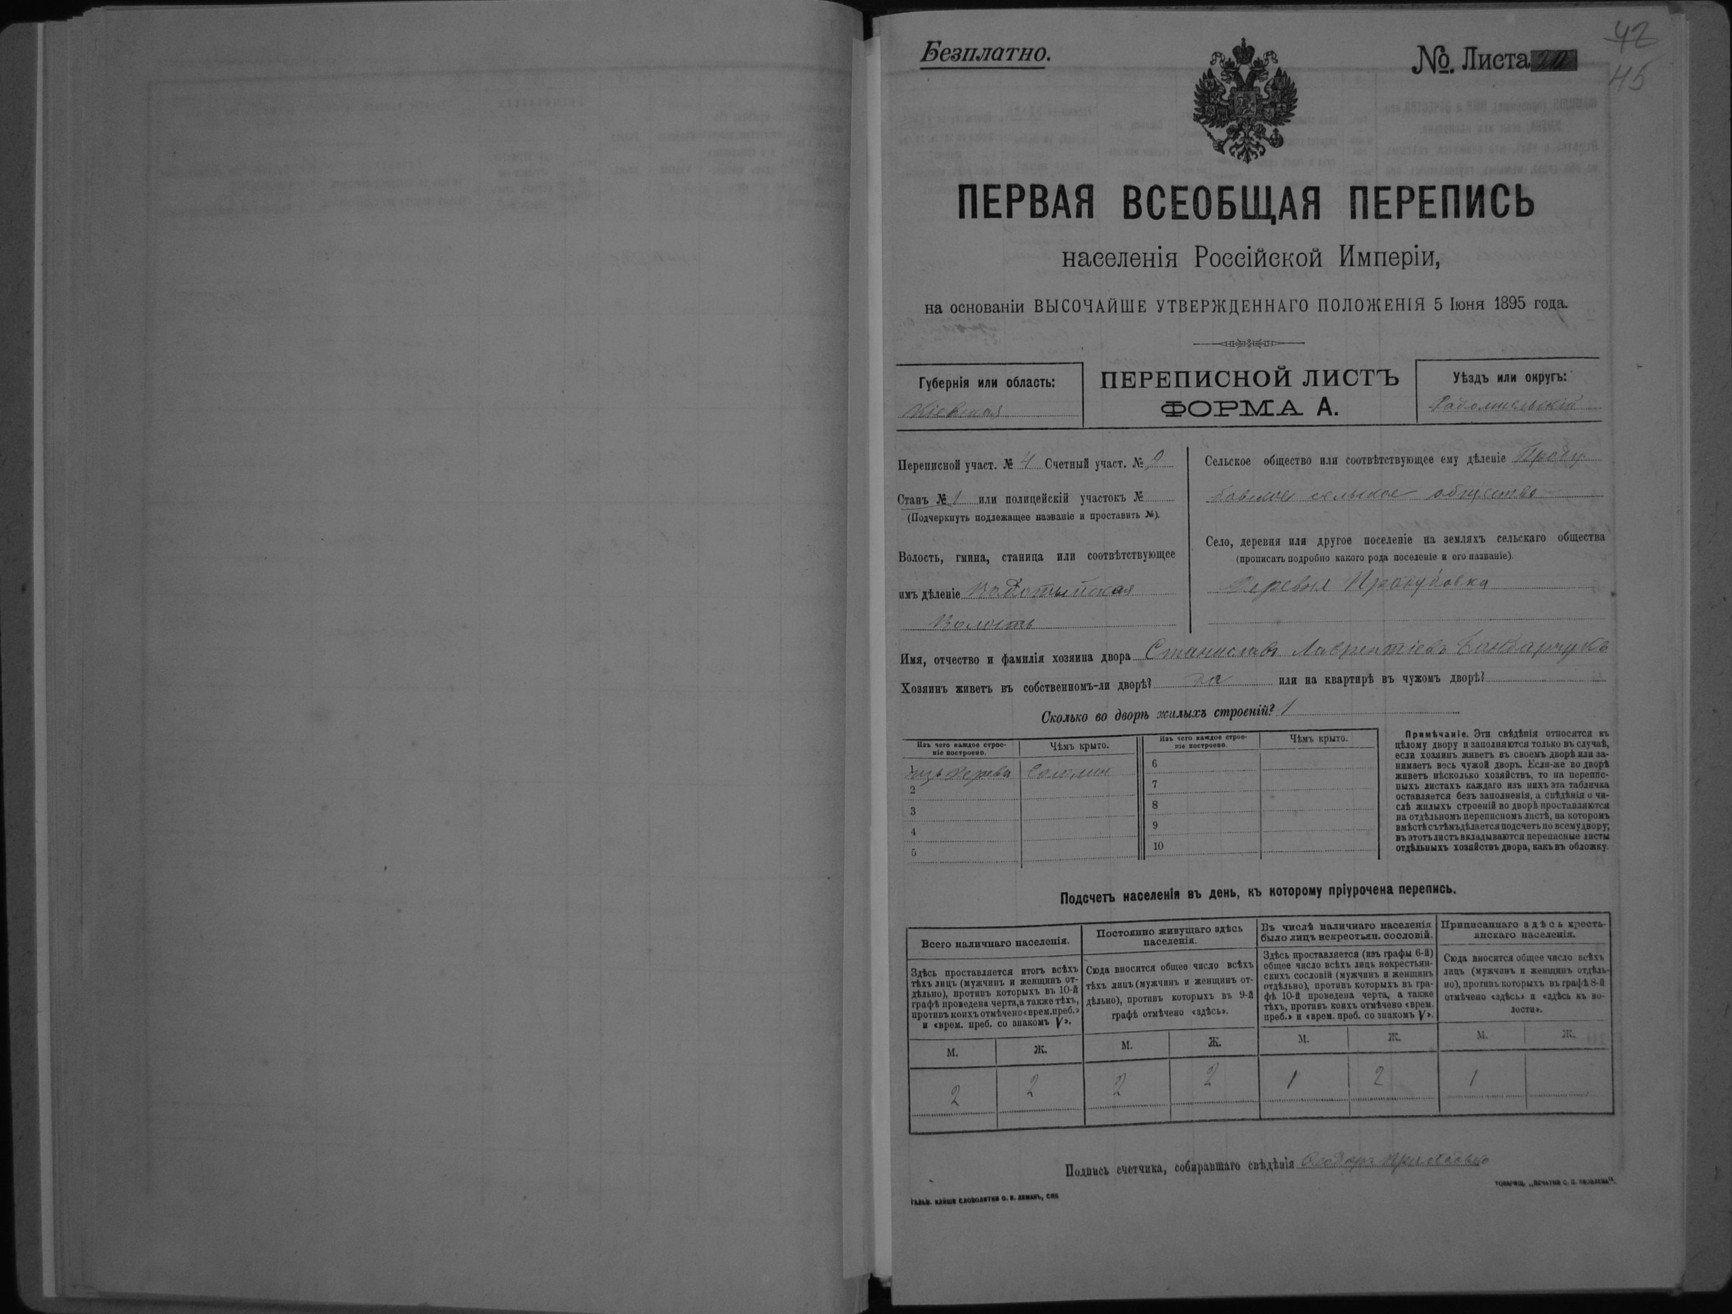 Безплатно.
№. Листа
42
45
ПЕРВАЯ ВСЕОБЩАЯ ПЕРЕПИСЬ
населенія Россійской Имперіи,
на основаніи ВЫСОЧАЙШЕ УТВЕРЖДЕННАГО ПОЛОЖЕНІЯ 5 Іюня 1895 года.
Губернія или область:
Кіевская
ПЕРЕПИСНОЙ ЛИСТЪ
ФОРМА А.
Уѣздъ или округъ:
Радомысльскій
Переписной участ. № 4 Счетный участ. № 9
Станъ № 1 или полицейскій участокъ №
(Подчеркнуть подлежащее названіе и проставить №).
Волость, гмина, станица или соотвѣтствующее
имъ дѣленіе
Волость
Сельское общество или соотвѣтствующее ему дѣленіе
сельское общество
Село, деревня или другое поселеніе на земляхъ сельскаго общества
(прописать подробно какого рода поселеніе и его названіе).
Деревня
Имя, отчество и фамилія хозяина двора Станиславъ Лаврентіевъ Бондарчукъ
Хозяинъ живетъ въ собственномъ-ли дворѣ? да или на квартирѣ въ чужомъ дворѣ?
Сколько во дворѣ жилыхъ строеній? 1
Изъ чего каждое строе-
ніе построено.
Чѣмъ крыто.
Изъ чего каждое строе-
ніе построено.
Чѣмъ крыто.
1 изъ дерева
2
3
4
5
6
7
8
9
10
Примѣчаніе. Эти свѣдѣнія относятся къ
цѣлому двору и заполняются только въ случаѣ,
если хозяинъ живетъ въ своемъ дворѣ или за-
нимаетъ весь чужой дворъ. Если-же во дворѣ
живетъ нѣсколько хозяйствъ, то на перепис-
ныхъ листахъ каждаго изъ нихъ эта табличка
оставляется безъ заполненія, а свѣдѣнія о чи-
слѣ жилыхъ строеній во дворѣ проставляются
на отдѣльномъ переписномъ листѣ, на которомъ
вмѣстѣ съ тѣмъ дѣлается подсчетъ по всему двору;
въ этотъ листъ вкладываются переписные листы
отдѣльныхъ хозяйствъ двора, какъ въ обложку.
Подсчетъ населенія въ день, къ которому пріурочена перепись.
Всего наличнаго населенія.
Здѣсь проставляется итогъ всѣхъ
тѣхъ лицъ (мужчинъ и женщинъ от-
дѣльно), противъ которыхъ въ 10-й
графѣ проведена черта, а также тѣхъ,
противъ коихъ отмѣчено «врем. преб.»
и «врем. преб. со знакомъ V».
Постоянно живущаго здѣсь
населенія.
Сюда вносится общее число всѣхъ
тѣхъ лицъ (мужчинъ и женщинъ от-
дѣльно), противъ которыхъ въ 9-й
графѣ отмѣчено «здѣсь».
Въ числѣ наличнаго населенія
было лицъ некрестьян. сословій.
Здѣсь проставляется (изъ графы 6-й)
общее число всѣхъ лицъ некрестьян-
скихъ сословій (мужчинъ и женщинъ
отдѣльно), противъ которыхъ въ гра-
фѣ 10-й проведена черта, а также
тѣхъ, противъ коихъ отмѣчено «врем.
преб.» и «врем. преб. со знакомъ V».
Приписаннаго здѣсь кресть-
янскаго населенія.
Сюда вносится общее число всѣхъ
лицъ (мужчинъ и женщинъ отдѣль-
но), противъ которыхъ въ графѣ 8-й
отмѣчено «здѣсь» и «здѣсь въ во-
лости».
М. Ж. М. Ж. М. Ж. М. Ж.
2 2 2 2 1 2 1
Подпись счетчика, собиравшаго свѣдѣнія